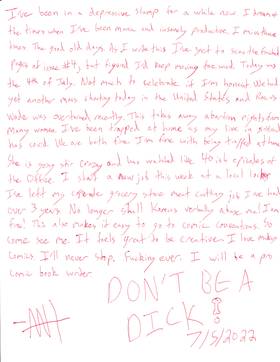 I've been in a depressive slump for a while now. I dream of
the times when I've been manic and insanely productive. I miss those
times. The good old days. As I write this I've yet to scan the finished
pages of issue #4, but figured I'd keep moving forward. Today was
the 4th of July. Not much to celebrate if I'm honest. We had
yet another mass shooting today in the United States and Roe vs
Wade was overturned recently. This takes away abortion rights from
many women. I've been trapped at home as my live in girlfriend
has covid. We are both fine. I'm fine with being trapped at home.
She is going stir crazy and has watched like 40ish episodes of
the Office. I start a new job this week at a local
I've left my grocery store meat cutting job I've had
over 3 years. No longer shall Karens verbally abuse me! I'm
free! This also makes it easy to go to comic conventions. So
come see me. It feels great to be creative. I love making
comics. I'll never stop. Fucking ever. I will be a pro
comic book writer.
DON'T BE A
DICK!
7/5/2022